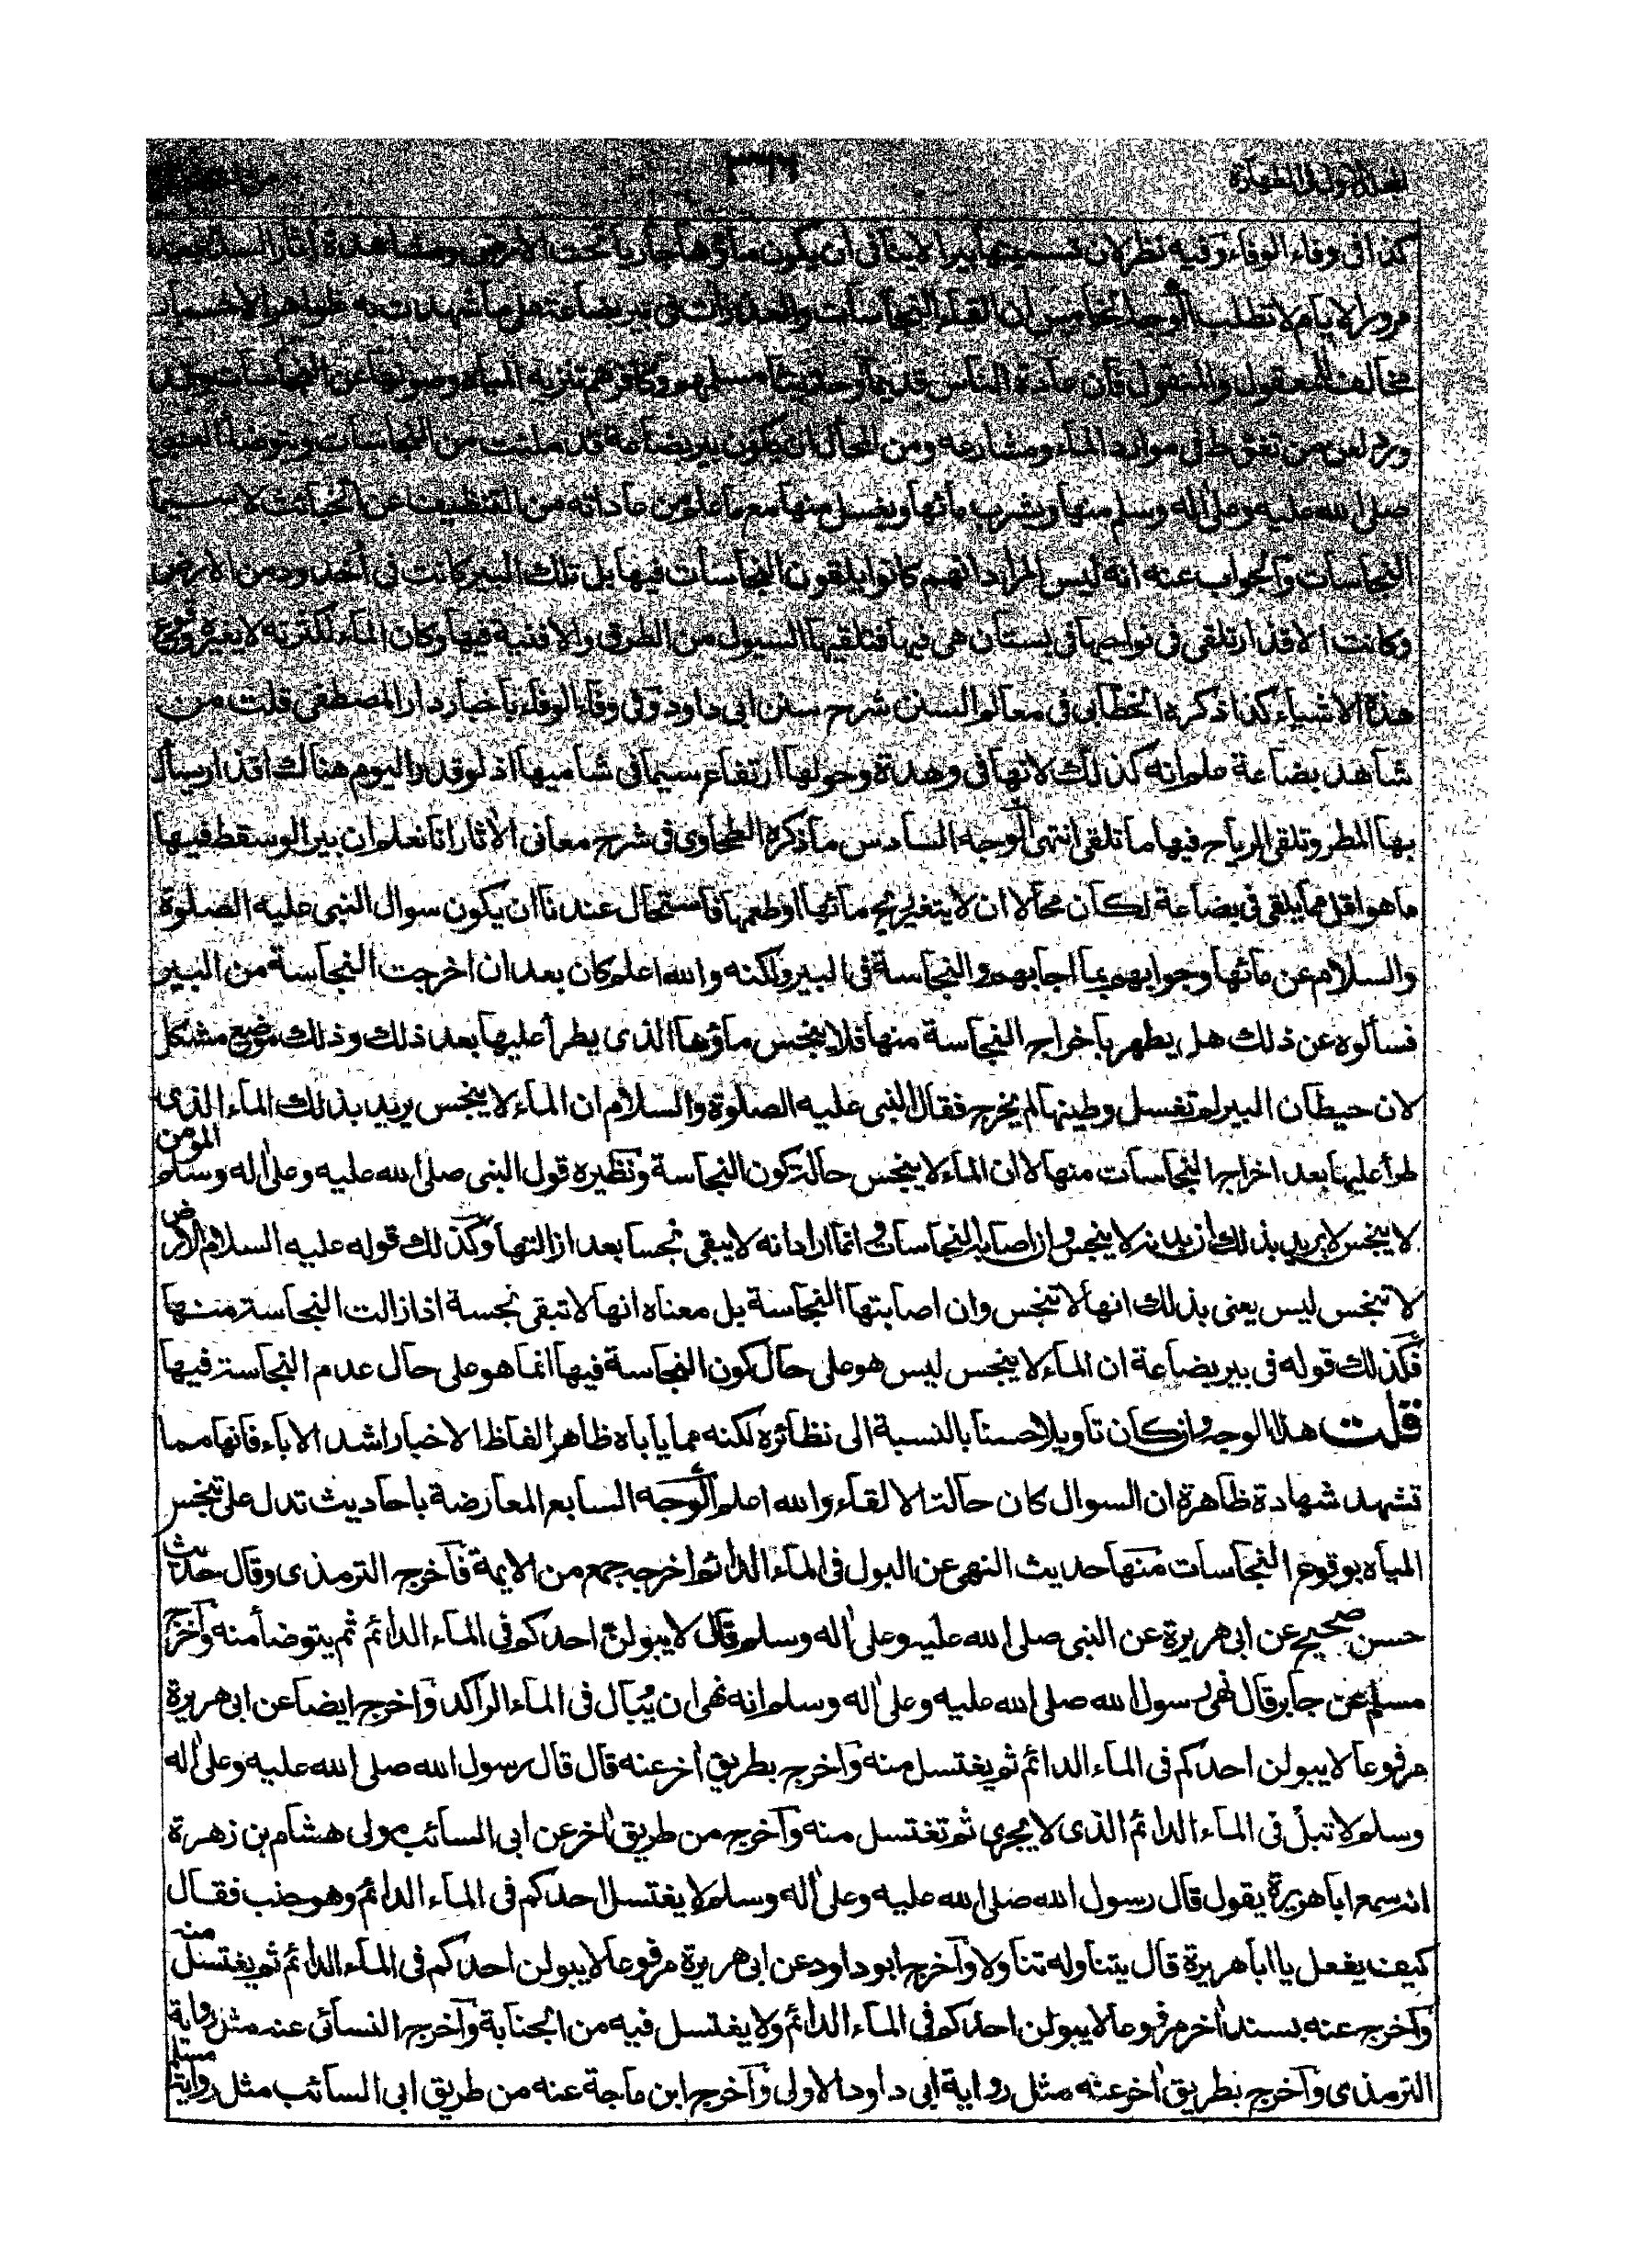 كذا فى وفاء الوفاء وفيه نظر لان تسميتها بيرا لا ينافى ان يكون ماؤها جاريا تحت الارض ومشاهدة اثار السد بعد
مرور الايام لا تطلب الوجه الخامس ان القاء النجاسات والعذرات فى بير بضاعة على ما شهدت به ظواهر الاخبار
مخالف للمعقول والمنقول فان عادة الناس قديما وحديثا مسلمهم وكافرهم تنزيه المياه وصونها عن النجاسات وقد
ورد لعن من تغوط فى موارد الماء ومشارعه ومن المحال ان يكون بير بضاعة قد ملئت من النجاسات ويتوضأ النبى
صلى الله عليه وعلى اله وسلم منها ويشرب مائها ويغسل منها مع ما علم من عاداته من التنظيف عن الخبائث لا سيما
النجاسات والجواب عنه انه ليس المراد انهم كانوا يلقون النجاسات فيها بل تلك البير كانت فى أخدود من الارض
وكانت الاقذار تلقى فى نواحيها فى بستان هى فيها فتلقيها السيول من الطرق والافنية فيها وكان الماء لكثرته لا يغيره وقوع
هذه الاشياء كذا ذكره الخطابى فى معالم السنن شرح سنن ابى داود وفى وفاء الوفاء باخبار دار المصطفى قلت من
شاهد بضاعة علم انه كذلك لانها فى وهدة وحولها ارتفاع سيما فى شاميها اذ لو قدر اليوم هنالك اقذار لسال
بها المطر وتلقى الرياح فيها ما تلقى انتهى الوجه السادس ما ذكره الطحاوى فى شرح معانى الاثار انا نعلم ان بيرا لو سقط فيها
ما هو اقل مما يلقى فى بضاعة لكان محالا ان لا يتغير ريح مائها او طعمها فاستحال عندنا ان يكون سوال النبى عليه الصلوة
والسلام عن مائها وجوابهم بما اجابهم والنجاسة فى البير ولكنه والله اعلم كان بعد ان اخرجت النجاسة من البير
فسألوه عن ذلك هل يطهر باخراج النجاسة منها فلا ينجس ماؤها الذى يطرأ عليها بعد ذلك وذلك موضع مشكل
لان حيطان البير لم تغسل وطينها لم يخرج فقال النبى عليه الصلوة والسلام ان الماء لا ينجس يريد بذلك الماء الذى
طرأ عليها بعد اخراج النجاسات منها لا ان الماء لا ينجس حالة كون النجاسة ونظيره قول النبى صلى الله عليه وعلى اله وسلم المومن
لا ينجس لا يريد بذلك ان بدنه لا ينجس وان اصابه النجاسات وانما اراد انه لا يبقى نجسا بعد ازالتها وكذلك قوله عليه السلام الارض
لا تنجس ليس يعنى بذلك انها لا تنجس وان اصابتها النجاسة بل معناه انها لا تبقى نجسة اذا زالت النجاسة منها
فكذلك قوله فى بير بضاعة ان الماء لا ينجس ليس هو على حال كون النجاسة فيها انما هو على حال عدم النجاسة فيها
قلت هذا الوجه وان كان تاويلا حسنا بالنسبة الى نظائره لكنه مما ياباه ظاهر الفاظ الاخبار اشد الاباء فانها مما
تشهد شهادة ظاهرة ان السوال كان حالة الالقاء والله اعلم الوجه السابع المعارضة باحاديث تدل على تنجس
المياه بوقوع النجاسات منها حديث النهى عن البول فى الماء الدائم اخرجه جمع من الايمة فاخرج الترمذى وقال حديث
حسن صحيح عن ابى هريرة عن النبى صلى الله عليه وعلى اله وسلم قال لا يبولن احدكم فى الماء الدائم ثم يتوضأ منه واخرج
مسلم عن جابر قال نهى رسول الله صلى الله عليه وعلى اله وسلم انه نهى ان يُبال فى الماء الراكد واخرج ايضا عن ابى هريرة
مرفوعا لا يبولن احدكم فى الماء الدائم ثم يغتسل منه واخرج بطريق اخر عنه قال قال رسول الله صلى الله عليه وعلى اله
وسلم لا تبل فى الماء الدائم الذى لا يجرى ثم تغتسل منه واخرج من طريق اخر عن ابى السائب مولى هشام بن زهرة
انه سمع ابا هريرة يقول قال رسول الله صلى الله عليه وعلى اله وسلم لا يغتسل احدكم فى الماء الدائم وهو جنب فقال
كيف يفعل يا ابا هريرة قال يتناوله تناولا واخرج ابو داود عن ابى هريرة مرفوعا لا يبولن احدكم فى الماء الدائم ثم يغتسل منه
واخرج عنه بسند اخر مرفوعا لا يبولن احدكم فى الماء الدائم ولا يغتسل فيه من الجنابة واخرج النسائى عنه مثل رواية
الترمذى واخرج بطريق اخر عنه مثل رواية ابى داود الاولى واخرج ابن ماجة عنه من طريق ابى السائب مثل رواية مسلم